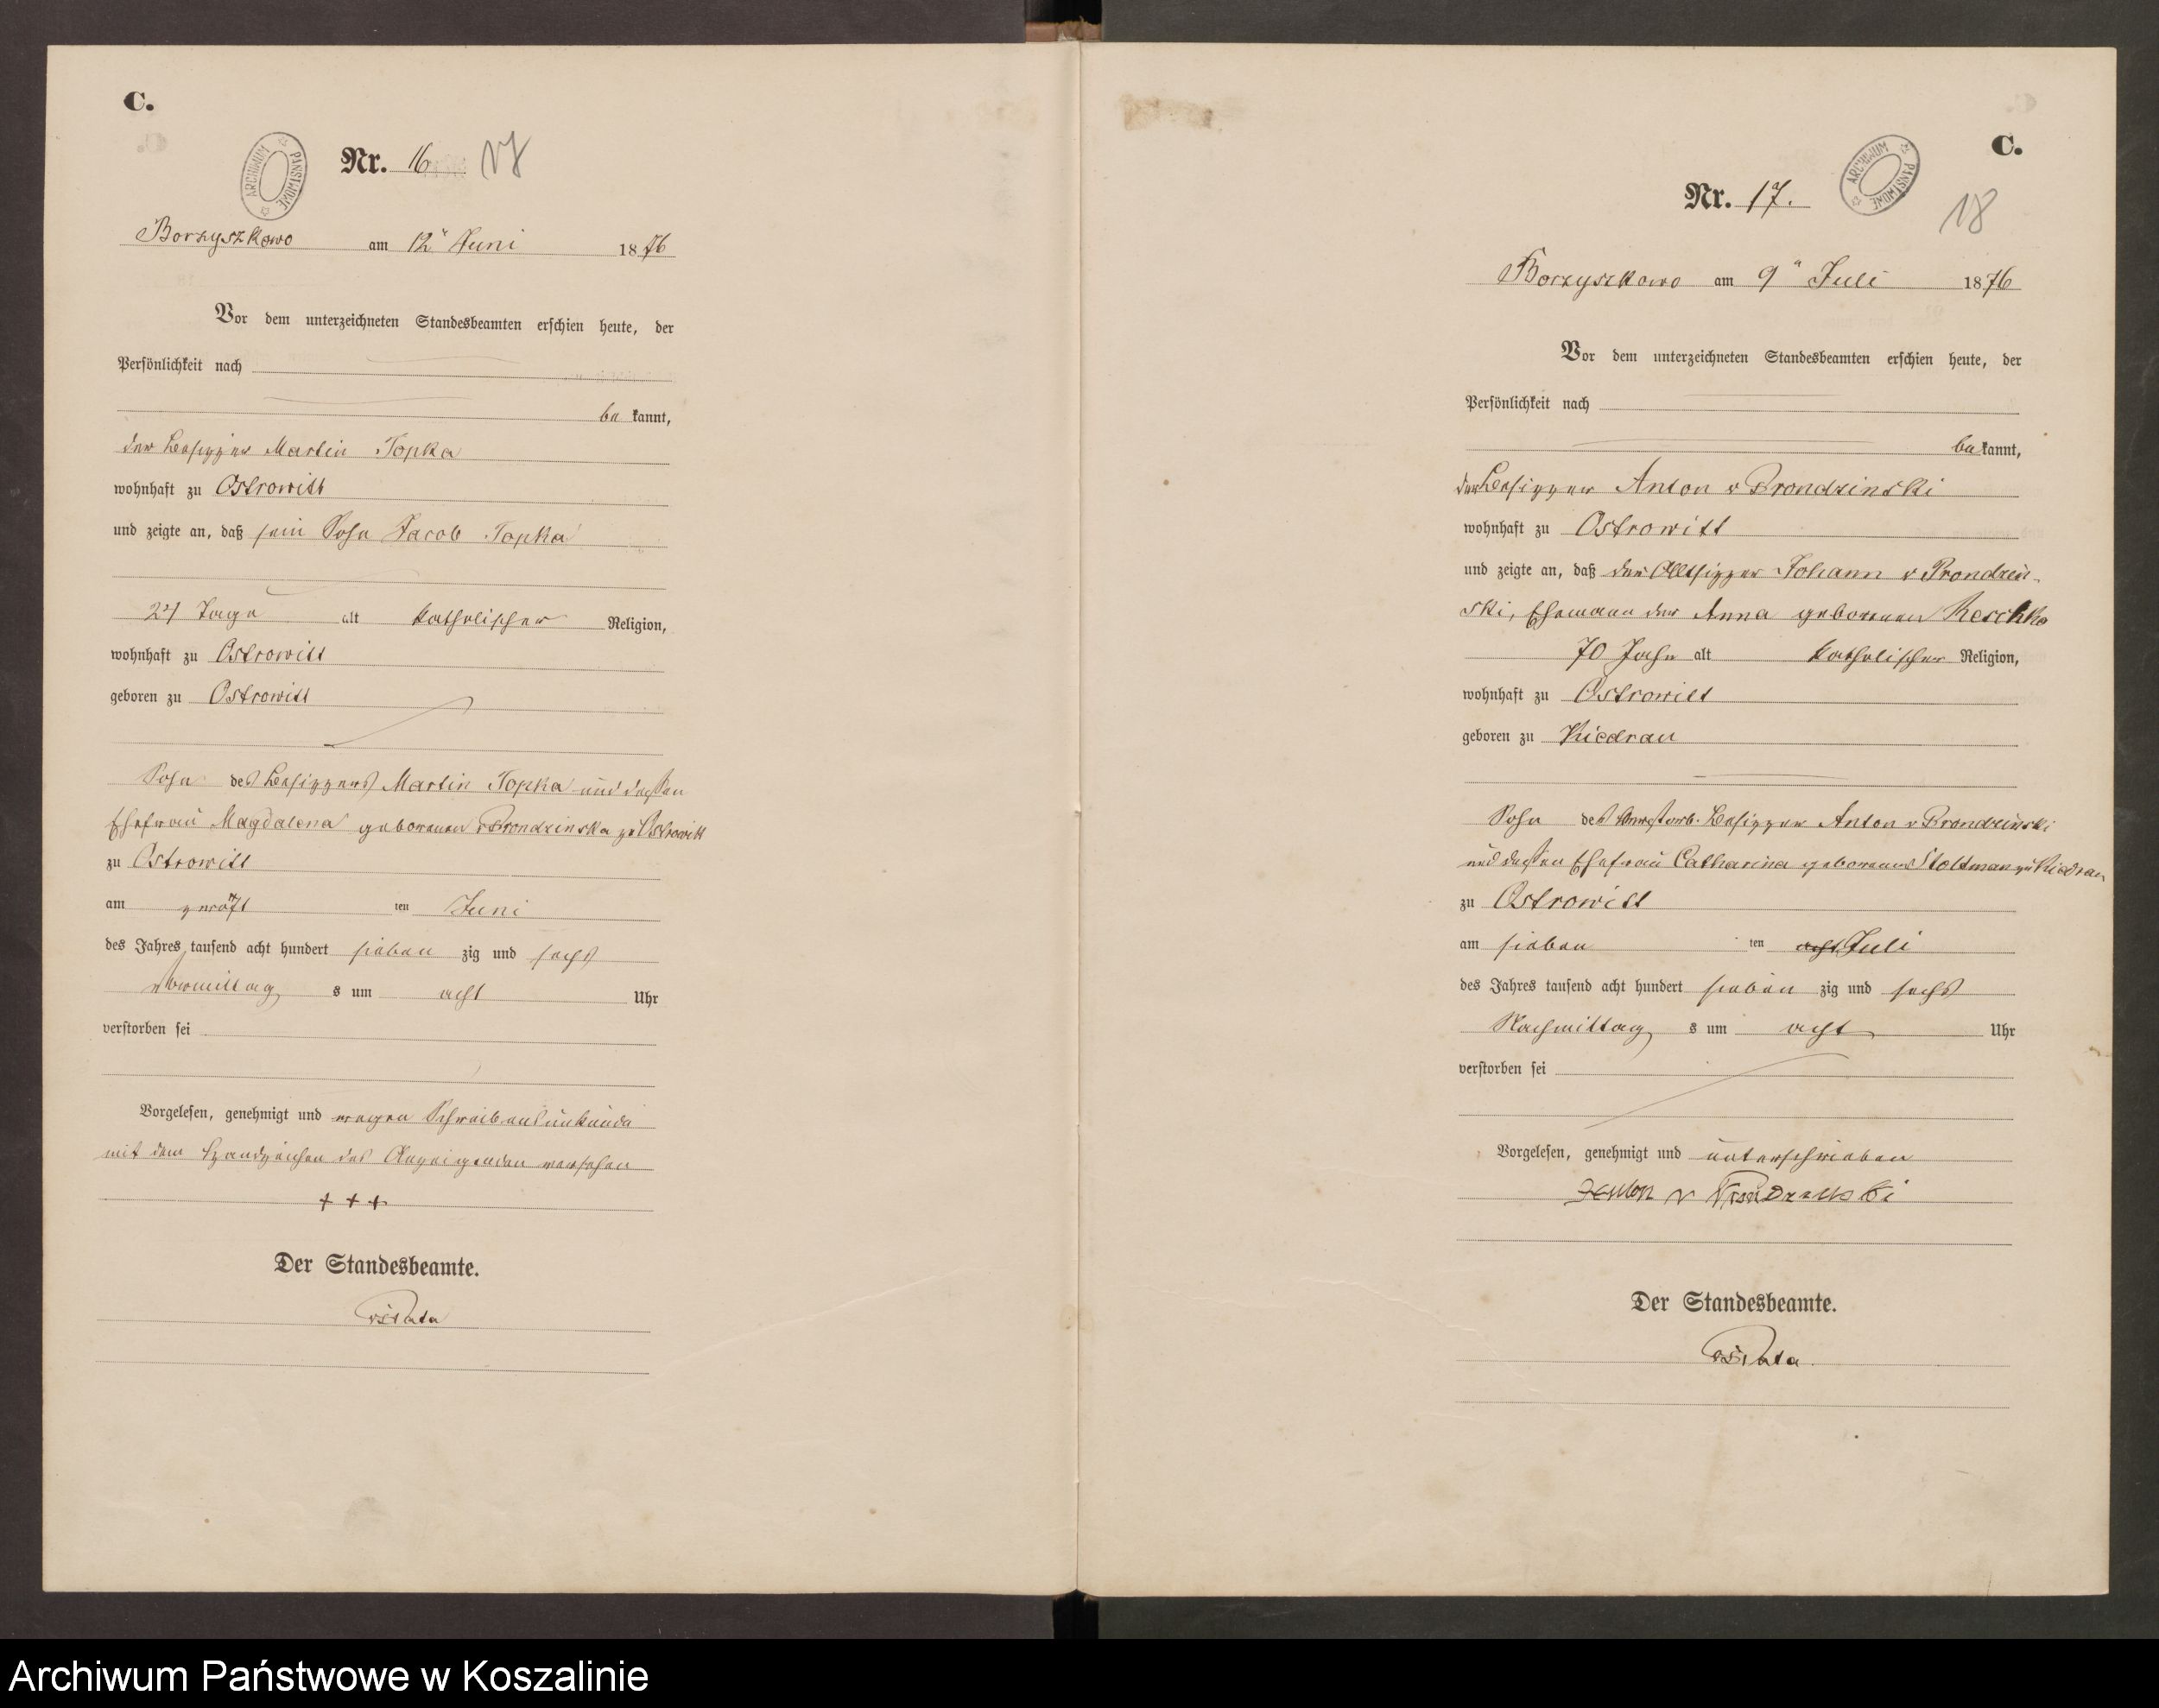 C.
ARCHIWUM PAŃSTWOWE
Nr. 16 17
Borzyszkowo am 12" Juni 1876
Vor dem unterzeichneten Standesbeamten erschien heute, der
Persönlichkeit nach
be kannt,
der Besitzer Martin Topka
wohnhaft zu Ostrowitt
und zeigte an, daß sein Sohn Jacob Topka
24 Tage alt katholischer Religion,
wohnhaft zu Ostrowitt
geboren zu Ostrowitt
Sohn des Besitzers Martin Topka und dessen
Ehefrau Magdalena geborenen v Prondzinska zu Ostrowitt
zu Ostrowitt
am zwölf ten Juni
des Jahres tausend acht hundert sieben zig und sechs
Vormittag s um acht Uhr
verstorben sei
Vorgelesen, genehmigt und wegen Schreibensunkunde
mit dem Handzeichen des Anzeigenden versehen
+ + +
Der Standesbeamte.
C.
ARCHIWUM PAŃSTWOWE
Nr. 17. 18
Borzyszkowo am 9" Juli 1876
Vor dem unterzeichneten Standesbeamten erschien heute, der
Persönlichkeit nach
be kannt,
der Besitzer Anton v Prondzinski
wohnhaft zu Ostrowitt
und zeigte an, daß der Altsitzer Johann v Prondzin-
ski, Ehemann der Anna geborenen Reschke
70 Jahr alt katholischer Religion,
wohnhaft zu Ostrowitt
geboren zu Kiedrau
Sohn des verstorb. Besitzer Anton v Prondzinski
und dessen Ehefrau Catharina geborenen Stoltman zu Kiedrau
zu Ostrowitt
am sieben ten acht Juli
des Jahres tausend acht hundert sieben zig und sechs
Nachmittag s um acht Uhr
verstorben sei
Vorgelesen, genehmigt und unterschrieben
Anton v Prondzinski
Der Standesbeamte.
Archiwum Państwowe w Koszalinie